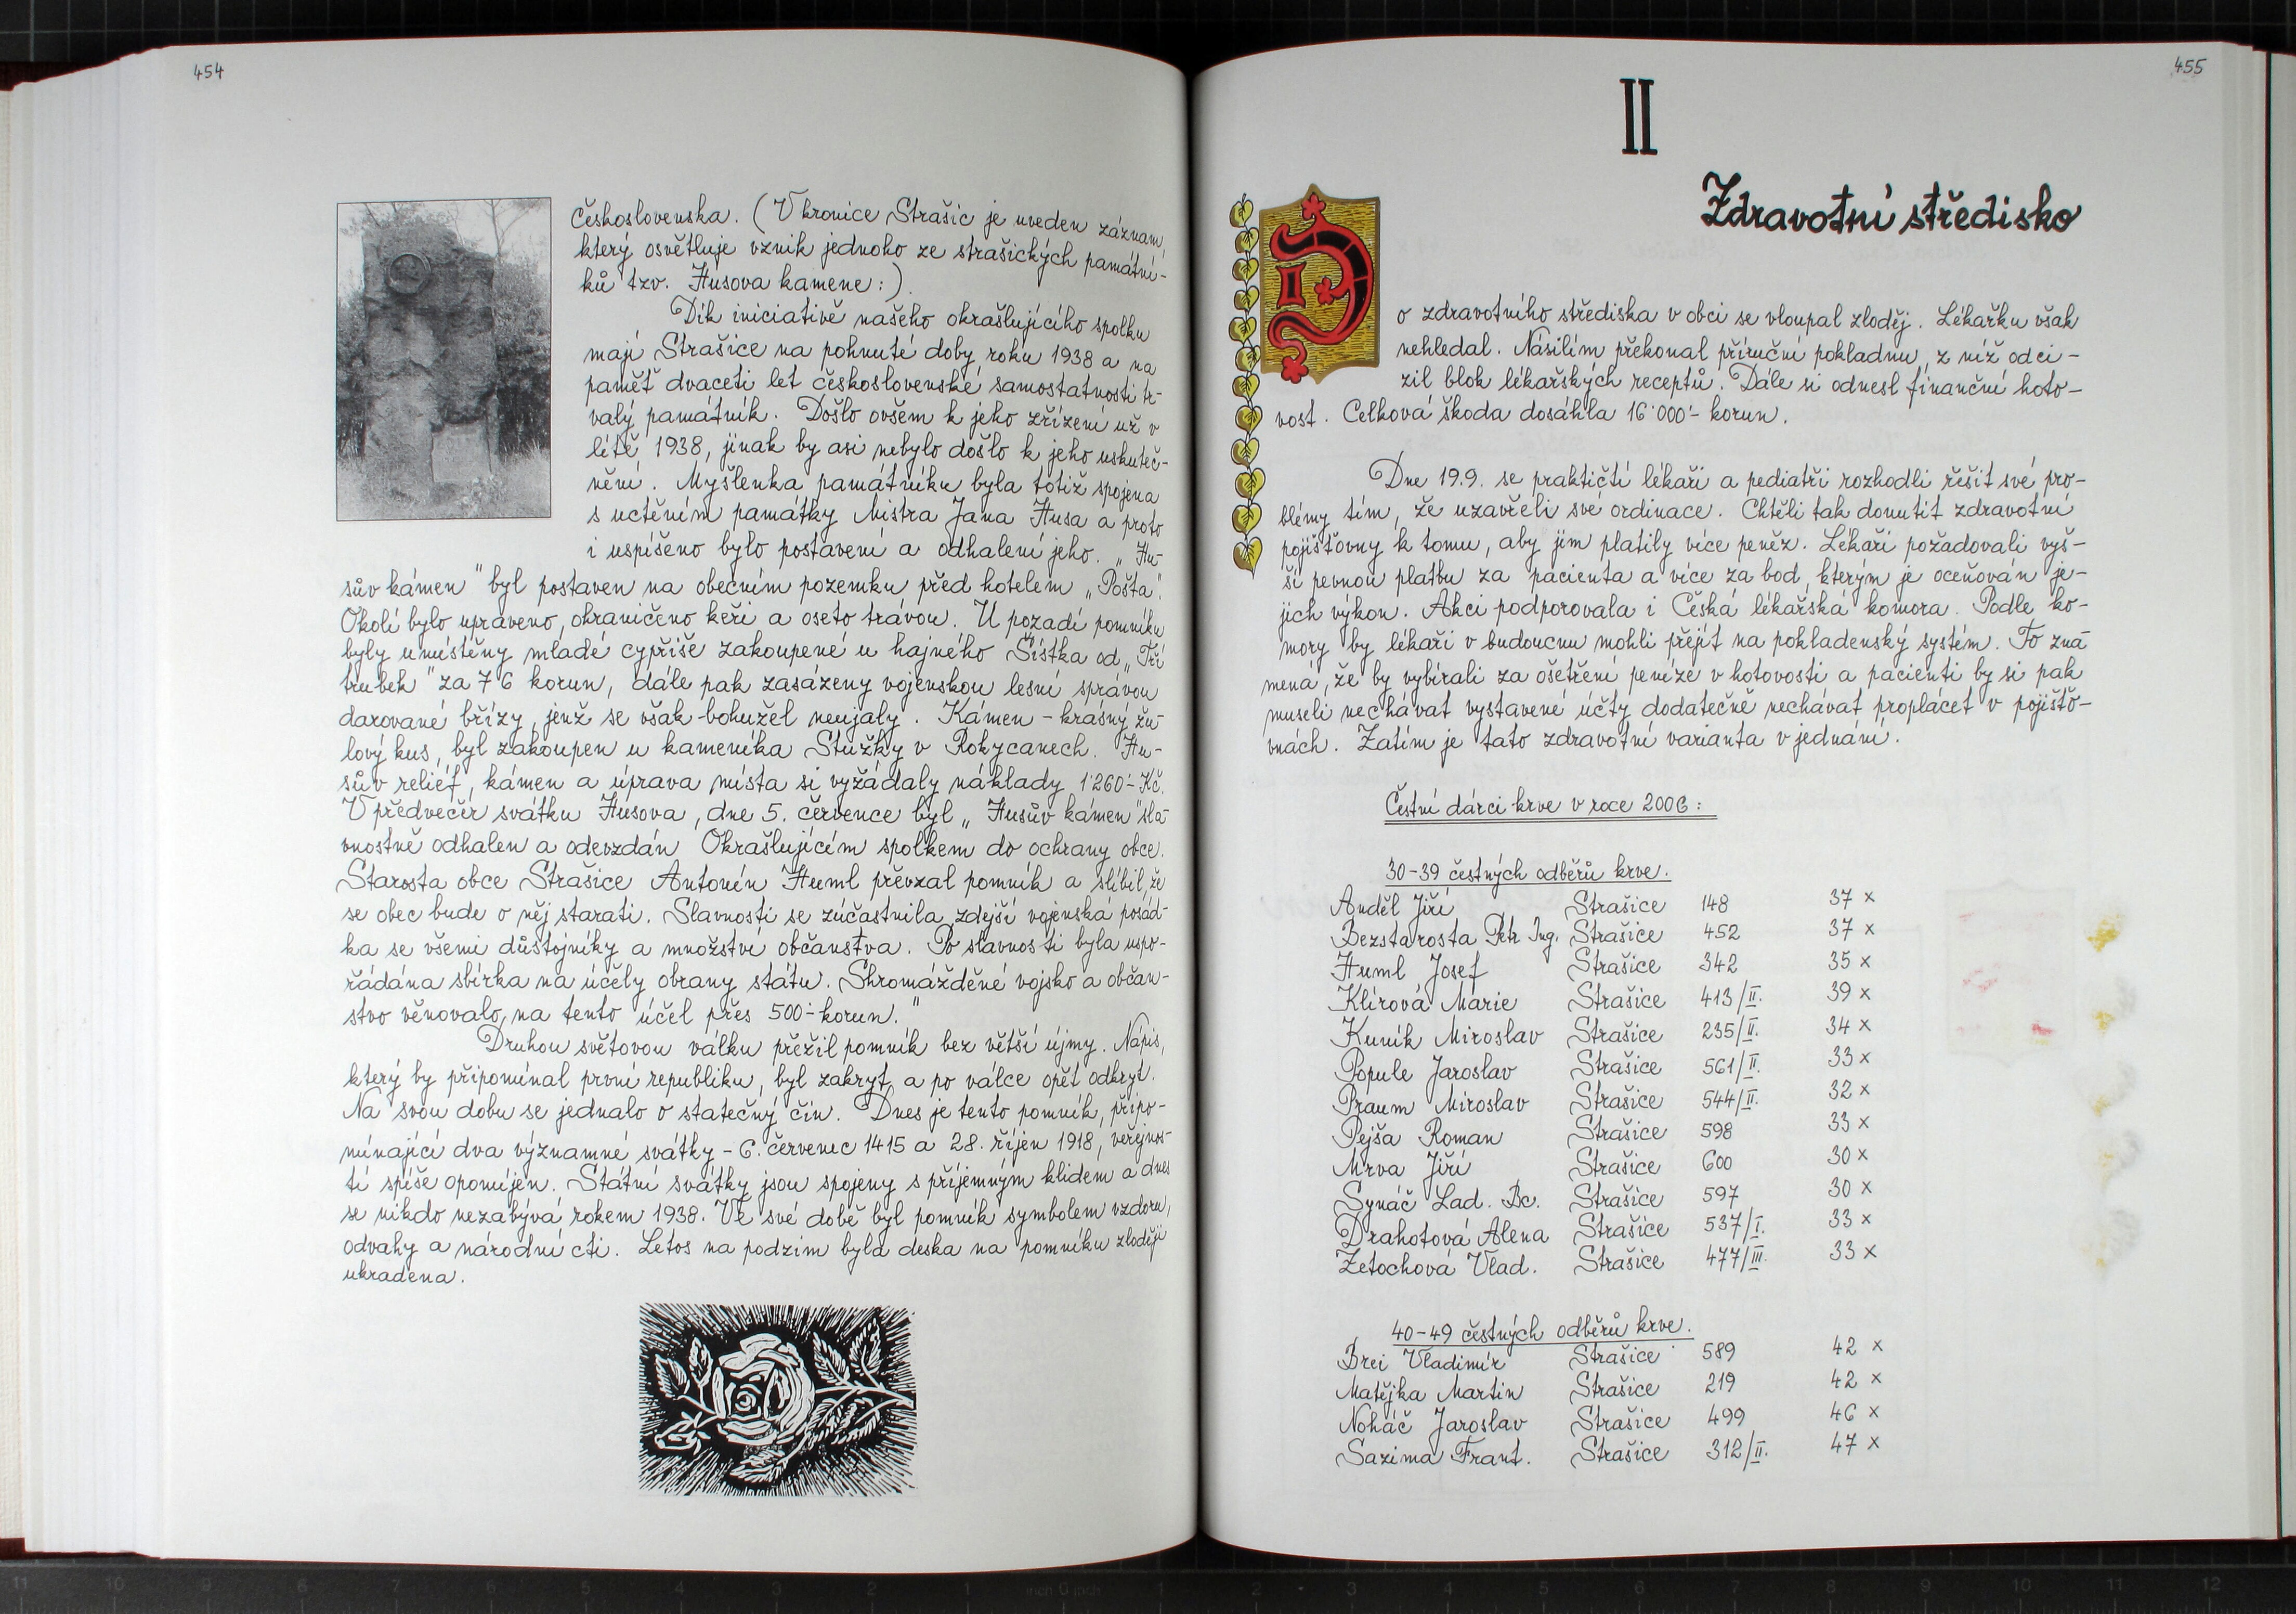 454
Československa. (V kronice Strašic je uveden záznam,
který osvětluje vznik jednoho ze strašických památní-
ků tzv. Husova kamene:).
Dík iniciativě našeho okrašlujícího spolku
mají Strašice na pohnuté doby roku 1938 a na
paměť dvaceti let československé samostatnosti tr-
valý památník. Došlo ovšem k jeho zřízení už v
létě 1938, jinak by asi nebylo došlo k jeho uskuteč-
nění. Myšlenka památníku byla totiž spojena
s uctěním památky Mistra Jana Husa a proto
i uspíšeno bylo postavení a odhalení jeho. „Hu-
sův kámen" byl postaven na obecním pozemku před hotelem „Pošta".
Okolí bylo upraveno, ohraničeno keři a oseto trávou. U pozadí pomníku
byly umístěny mladé cypřiše zakoupené u hajného Šístka od „Tří
trubek" za 76 korun, dále pak zasázeny vojenskou lesní správou
darované břízy, jenž se však bohužel neujaly. Kámen - krásný žu-
lový kus, byl zakoupen u kameníka Stužky v Rokycanech. Hu-
sův reliéf, kámen a úprava místa si vyžádaly náklady 1'260'- Kč.
V předvečer svátku Husova, dne 5. července byl „Husův kámen" sla-
vnostně odhalen a odevzdán Okrašlujícím spolkem do ochrany obce.
Starosta obce Strašice Antonín Huml převzal pomník a slíbil, že
se obec bude o něj starati. Slavnosti se zúčastnila zdejší vojenská posád-
ka se všemi důstojníky a množství občanstva. Po slavnosti byla uspo-
řádána sbírka na účely obrany státu. Shromážděné vojsko a občan-
stvo věnovalo na tento účel přes 500'- korun."
Druhou světovou válku přežil pomník bez větší újmy. Nápis,
který by připomínal první republiku, byl zakryt a po válce opět odkryt.
Na svou dobu se jednalo o statečný čin. Dnes je tento pomník, připo-
mínající dva významné svátky - 6. červenec 1415 a 28. říjen 1918, veřejnos-
tí spíše opomíjen. Státní svátky jsou spojeny s příjemným klidem a dnes
se nikdo nezabývá rokem 1938. Ve své době byl pomník symbolem vzdoru,
odvahy a národní cti. Letos na podzim byla deska na pomníku zloději
ukradena.
455
II
Zdravotní středisko
Do zdravotního střediska v obci se vloupal zloděj. Lékařku však
nehledal. Násilím překonal příruční pokladnu, z níž odci-
zil blok lékařských receptů. Dále si odnesl finanční hoto-
vost. Celková škoda dosáhla 16'000'- korun.
Dne 19.9. se praktičtí lékaři a pediatři rozhodli řešit své pro-
blémy tím, že uzavřeli své ordinace. Chtěli tak donutit zdravotní
pojišťovny k tomu, aby jim platily více peněz. Lékaři požadovali vyš-
ší pevnou platbu za pacienta a více za bod, kterým je oceňován je-
jich výkon. Akci podporovala i Česká lékařská komora. Podle ko-
mory by lékaři v budoucnu mohli přejít na pokladenský systém. To zna-
mená, že by vybírali za ošetření peníze v hotovosti a pacienti by si pak
museli nechávat vystavené účty dodatečně nechávat proplácet v pojišťo-
vnách. Zatím je tato zdravotní varianta v jednání.
Čestní dárci krve v roce 2006:
30-39 čestných odběrů krve.
Anděl Jiří Strašice 148 37 x
Bezstarosta Petr Ing. Strašice 452 37 x
Huml Josef Strašice 342 35 x
Klírová Marie Strašice 413/II. 39 x
Kuník Miroslav Strašice 235/II. 34 x
Popule Jaroslav Strašice 561/II. 33 x
Praum Miroslav Strašice 544/II. 32 x
Pejša Roman Strašice 598 33 x
Mrva Jiří Strašice 600 30 x
Synáč Lad. Bc. Strašice 597 30 x
Drahotová Alena Strašice 537/I. 33 x
Zetochová Vlad. Strašice 477/III. 33 x
40-49 čestných odběrů krve.
Brei Vladimír Strašice 589 42 x
Matějka Martin Strašice 219 42 x
Noháč Jaroslav Strašice 499 46 x
Sazima Frant. Strašice 312/II. 47 x
11 10 9 8 7 6 5 4 3 2 1 inch 0 inch 1 2 3 4 5 6 7 8 9 10 11 12